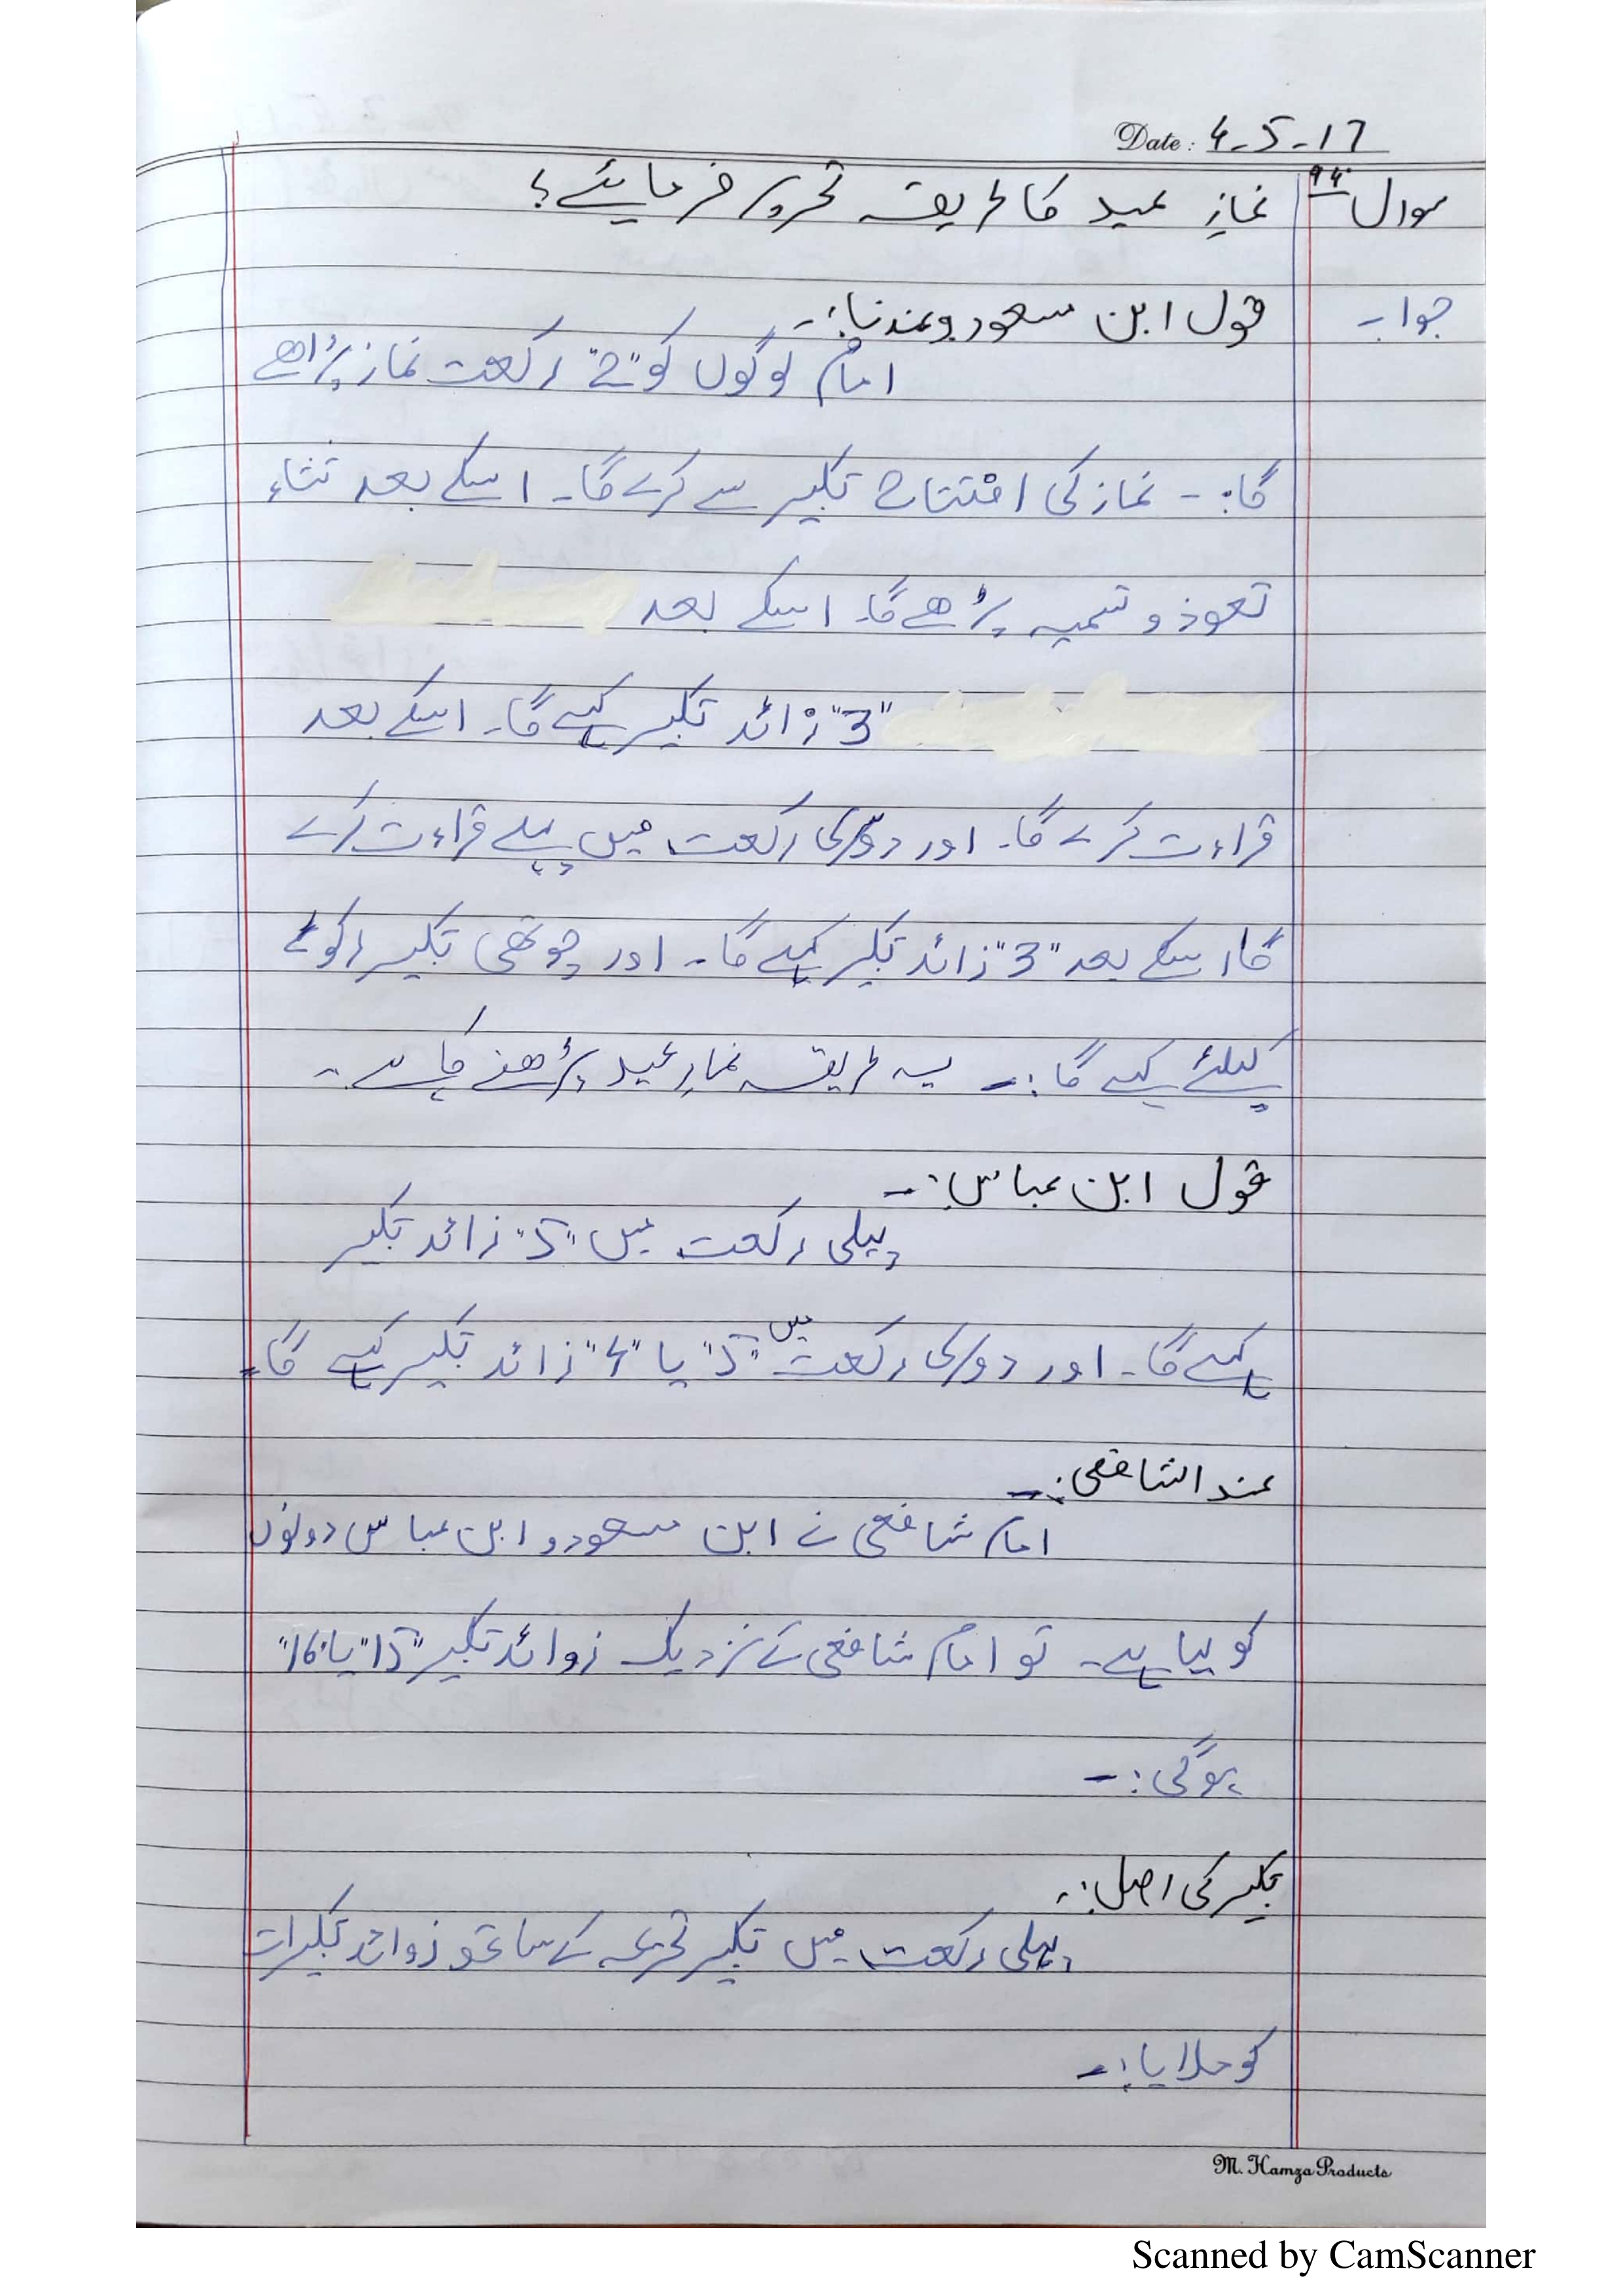 Date: 4-5-17
سوال ۹۴ نمازِ عید کا طریقہ تحریر فرمایئے؟
جواب قول ابن مسعود وعندنا:۔
امام لوگوں کو "2" رکعت نماز پڑاھے
گا:۔ نماز کی افتتاح تکبیر سے کرے گا۔ اسکے بعد ثناء
تعوذ و تسمیہ پڑھے گا۔ اسکے بعد
"3" زائد تکبیر کہے گا۔ اسکے بعد
قراءت کرے گا۔ اور دوسری رکعت میں پہلے قراءت کرے
گا، اسکے بعد "3" زائد تکبیر کہے گا۔ اور چوتھی تکبیر رکوع
کیلئے کہے گا:۔ یہ طریقہ نمازِ عید پڑھنے کا ہے۔
قول ابن عباس:۔
پہلی رکعت میں "5" زائد تکبیر
کہے گا۔ اور دوسری رکعت میں "5" یا "4" زائد تکبیر کہے گا۔
عند الشافعی:۔
امام شافعی نے ابن مسعود و ابن عباس دونوں
کو لیا ہے۔ تو امام شافعی کے نزدیک زوائد تکبیر "15" یا "16"
ہوگی:۔
تکبیر کی اصل:۔
پہلی رکعت میں تکبیر تحریمہ کے ساتھ زوائد تکبیرات
کو ملایا:۔
M. Hamza Products
Scanned by CamScanner